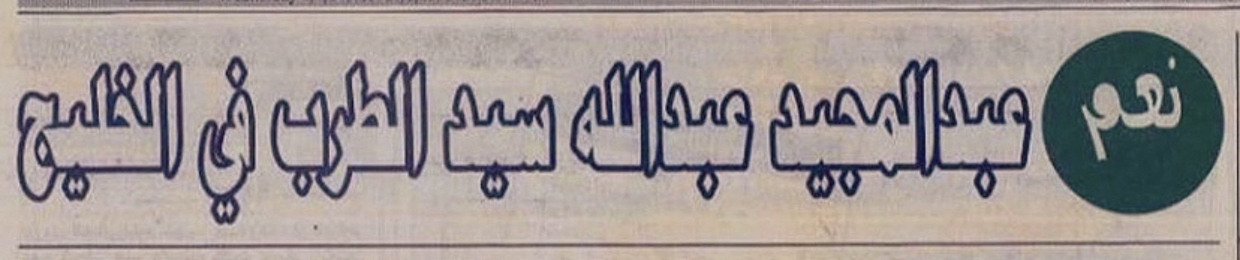 نعم عبدالمجيد عبدالله سيد الطرب في الخليج